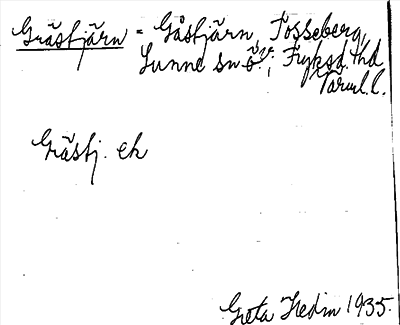 Gråstjärn = Gåstjärn, Tosseberg,
Sunne sn ö.v.; Fryksd. hd
Värml. l.
Gråstj. ek
Greta Hedin 1935.